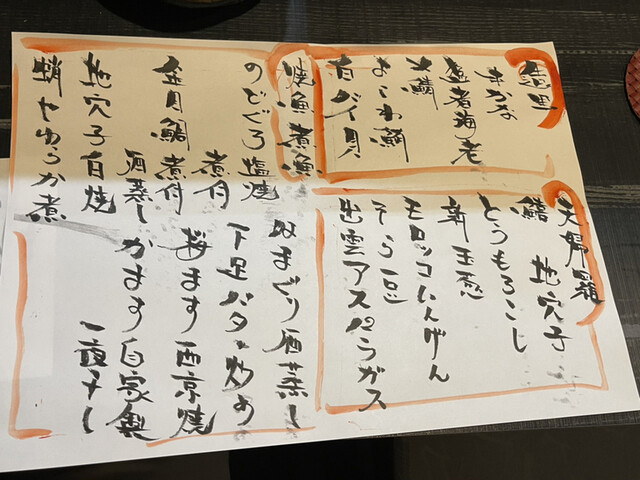 造里
猛者海老
よこわ鮪
白バイ貝
天婦羅
鱚 地穴子
とうもろこし
新玉葱
モロッコいんげん
そら豆
出雲アスパラガス
焼魚煮魚
のどぐろ 塩焼
煮付
金目鯛 煮付
酒蒸し
地穴子白焼
蛸やわらか煮
はまぐり酒蒸し
下足バター炒め
桜ます西京焼
かます自家製
一夜干し